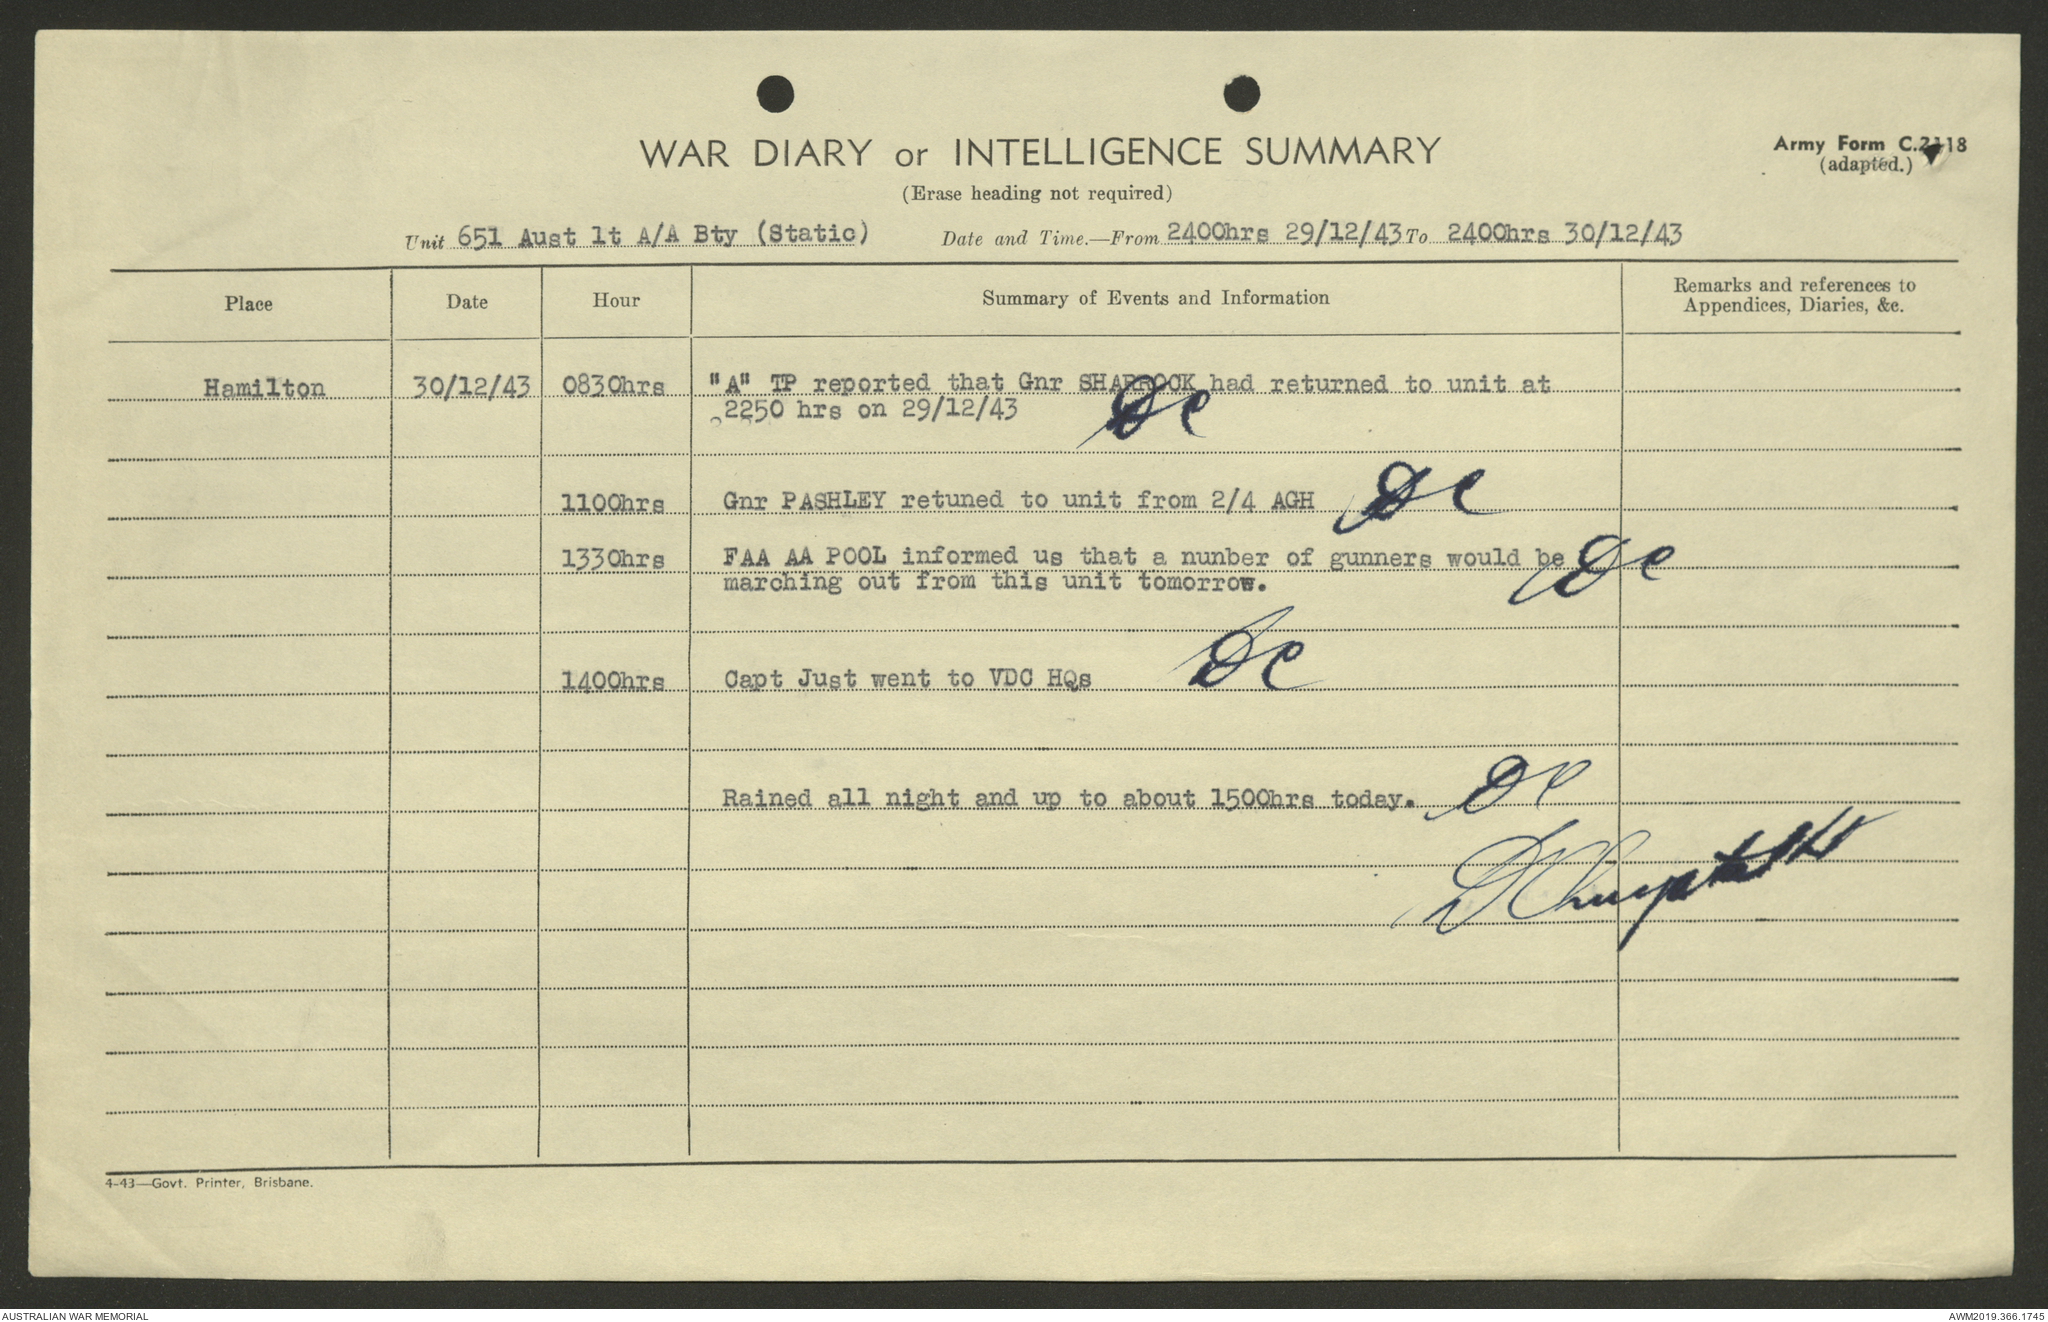 WAR DIARY or INTELLIGENCE SUMMARY
(Erase heading not required)
Army Form C.2118
(adapted.)
Unit 651 Aust lt A/A Bty (Static) Date and Time.—From 2400hrs 29/12/43 To 2400hrs 30/12/43
Place Date Hour Summary of Events and Information Remarks and references to
Appendices, Diaries, &c.
Hamilton 30/12/43 0830hrs "A" TP reported that Gnr SHARROCK had returned to unit at
2250 hrs on 29/12/43 DC
1100hrs Gnr PASHLEY retuned to unit from 2/4 AGH DC
1330hrs FAA AA POOL informed us that a nunber of gunners would be DC
marching out from this unit tomorrow.
1400hrs Capt Just went to VDC HQs DC
Rained all night and up to about 1500hrs today. DC
4-43—Govt. Printer, Brisbane.
AUSTRALIAN WAR MEMORIAL
AWM2019.366.1745